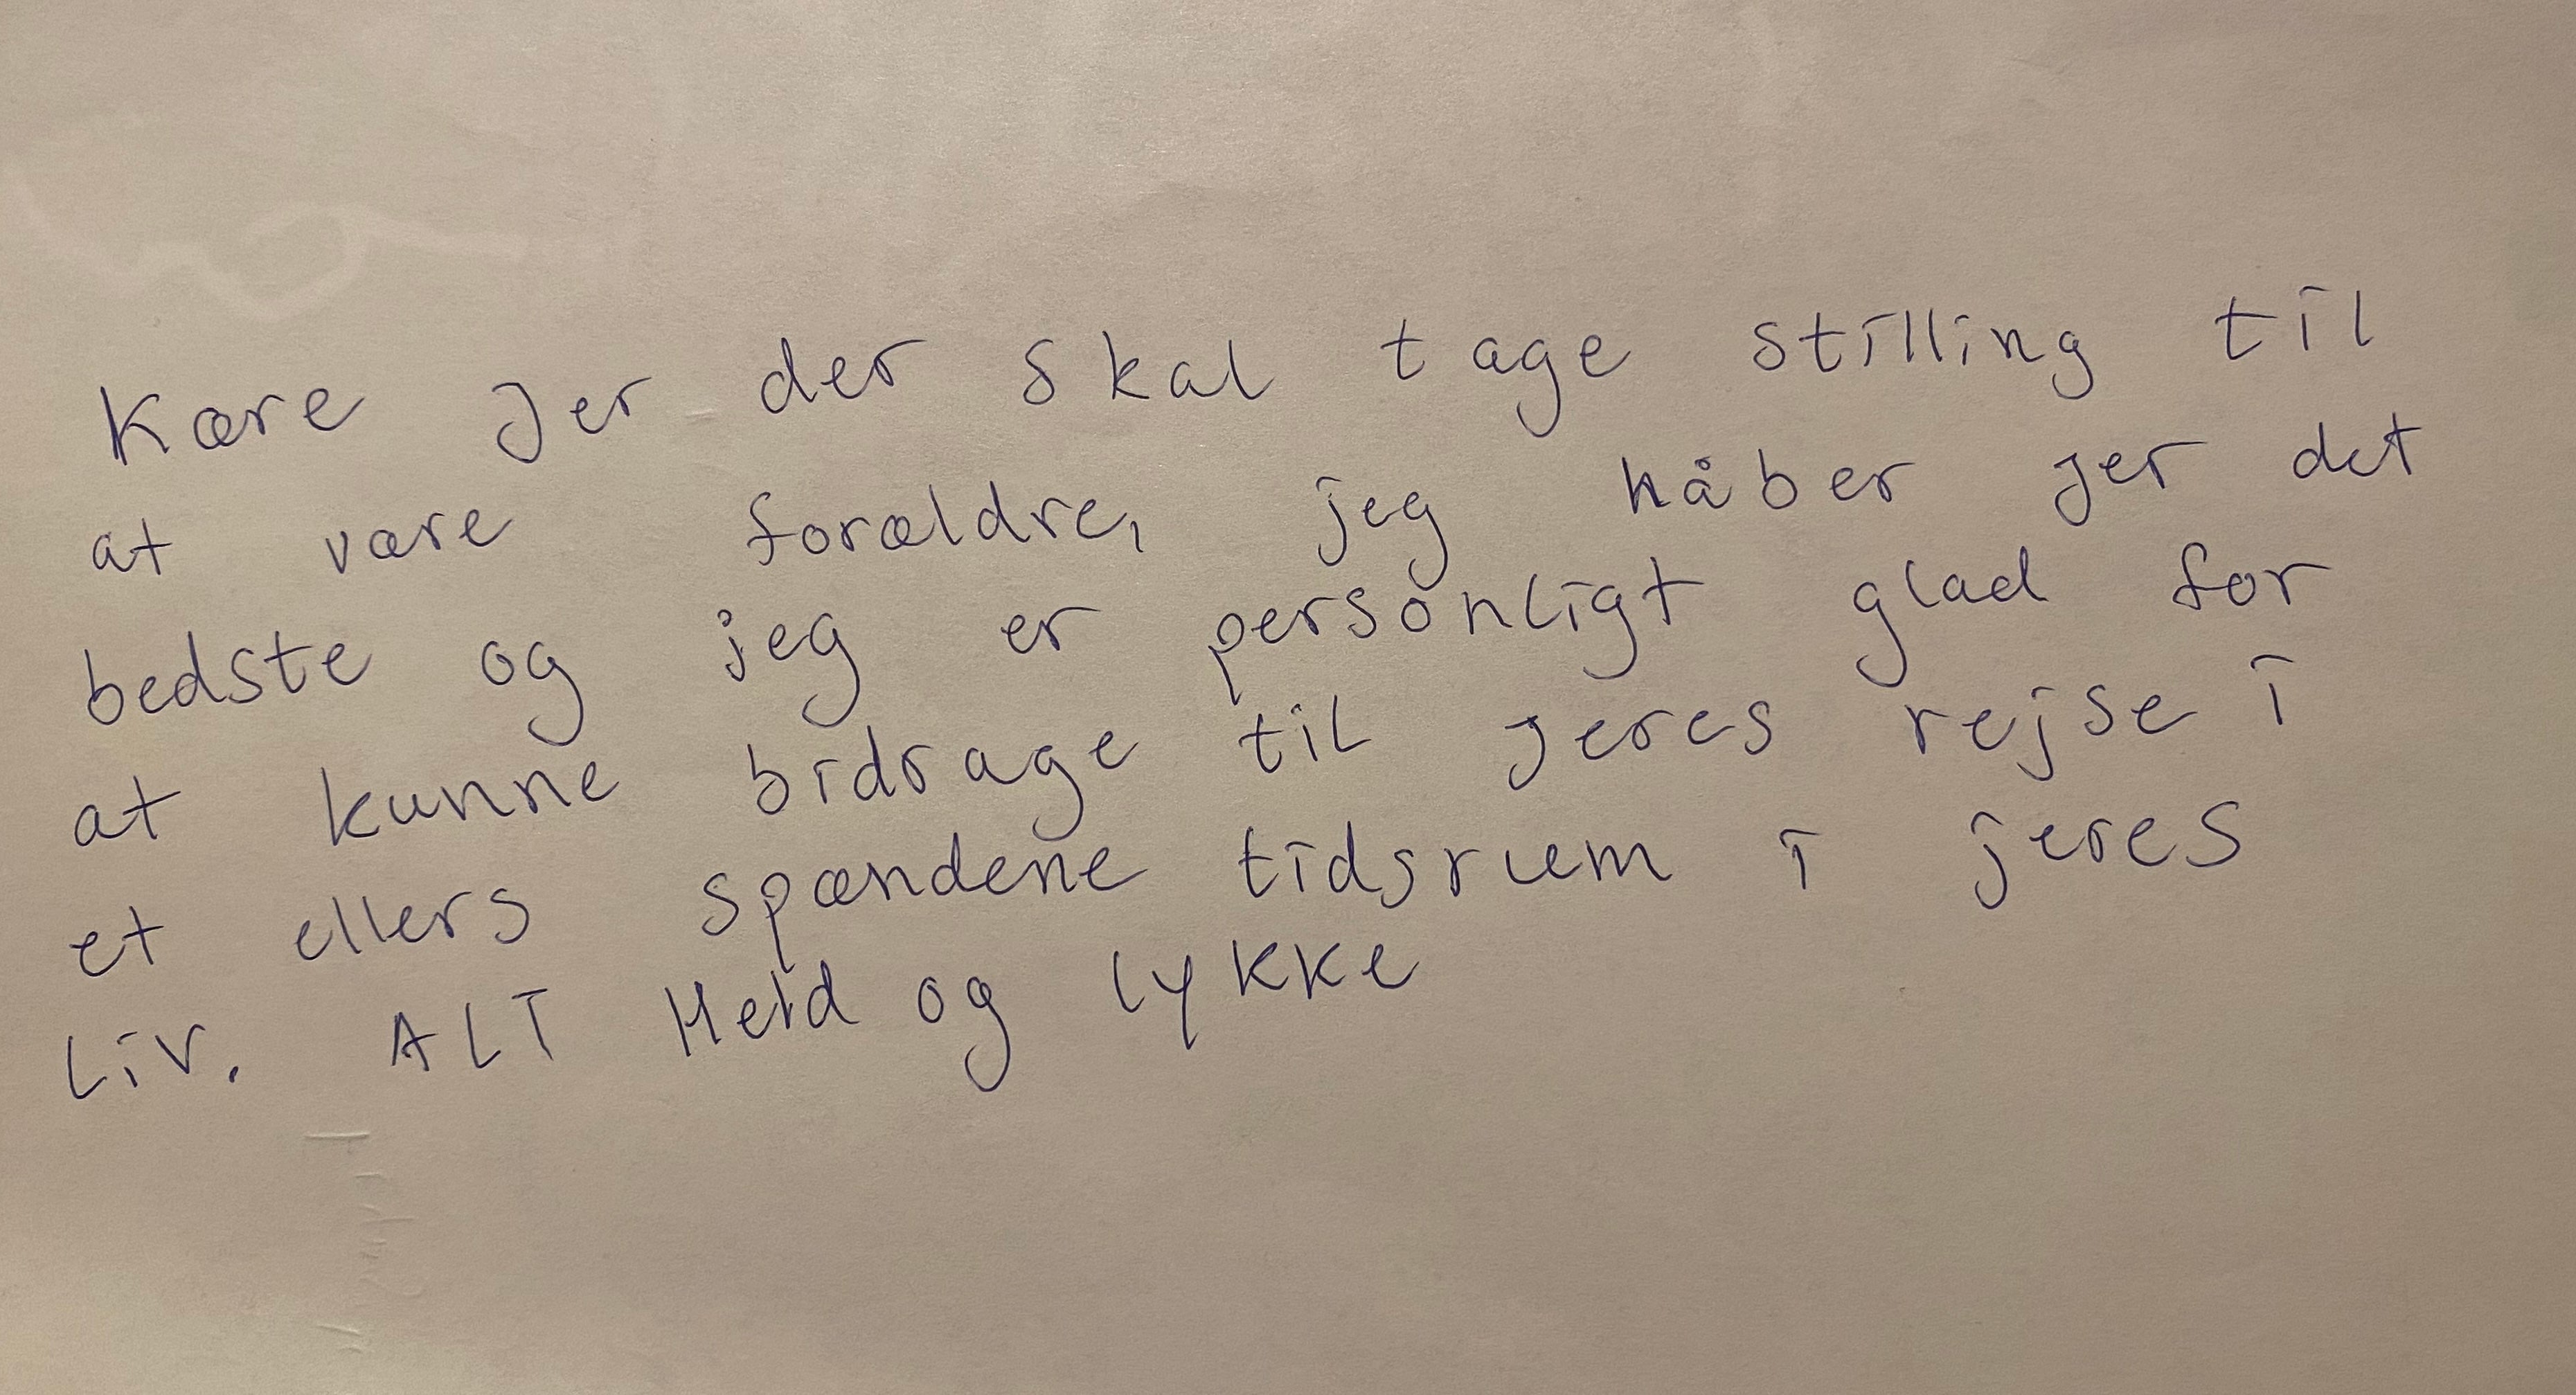 Kære Jer der skal tage stilling til
at være forældre, jeg håber jer det
bedste og jeg er personligt glad for
at kunne bidrage til jeres rejse i
et ellers spændene tidsrum i jeres
Liv. ALT Held og lykke